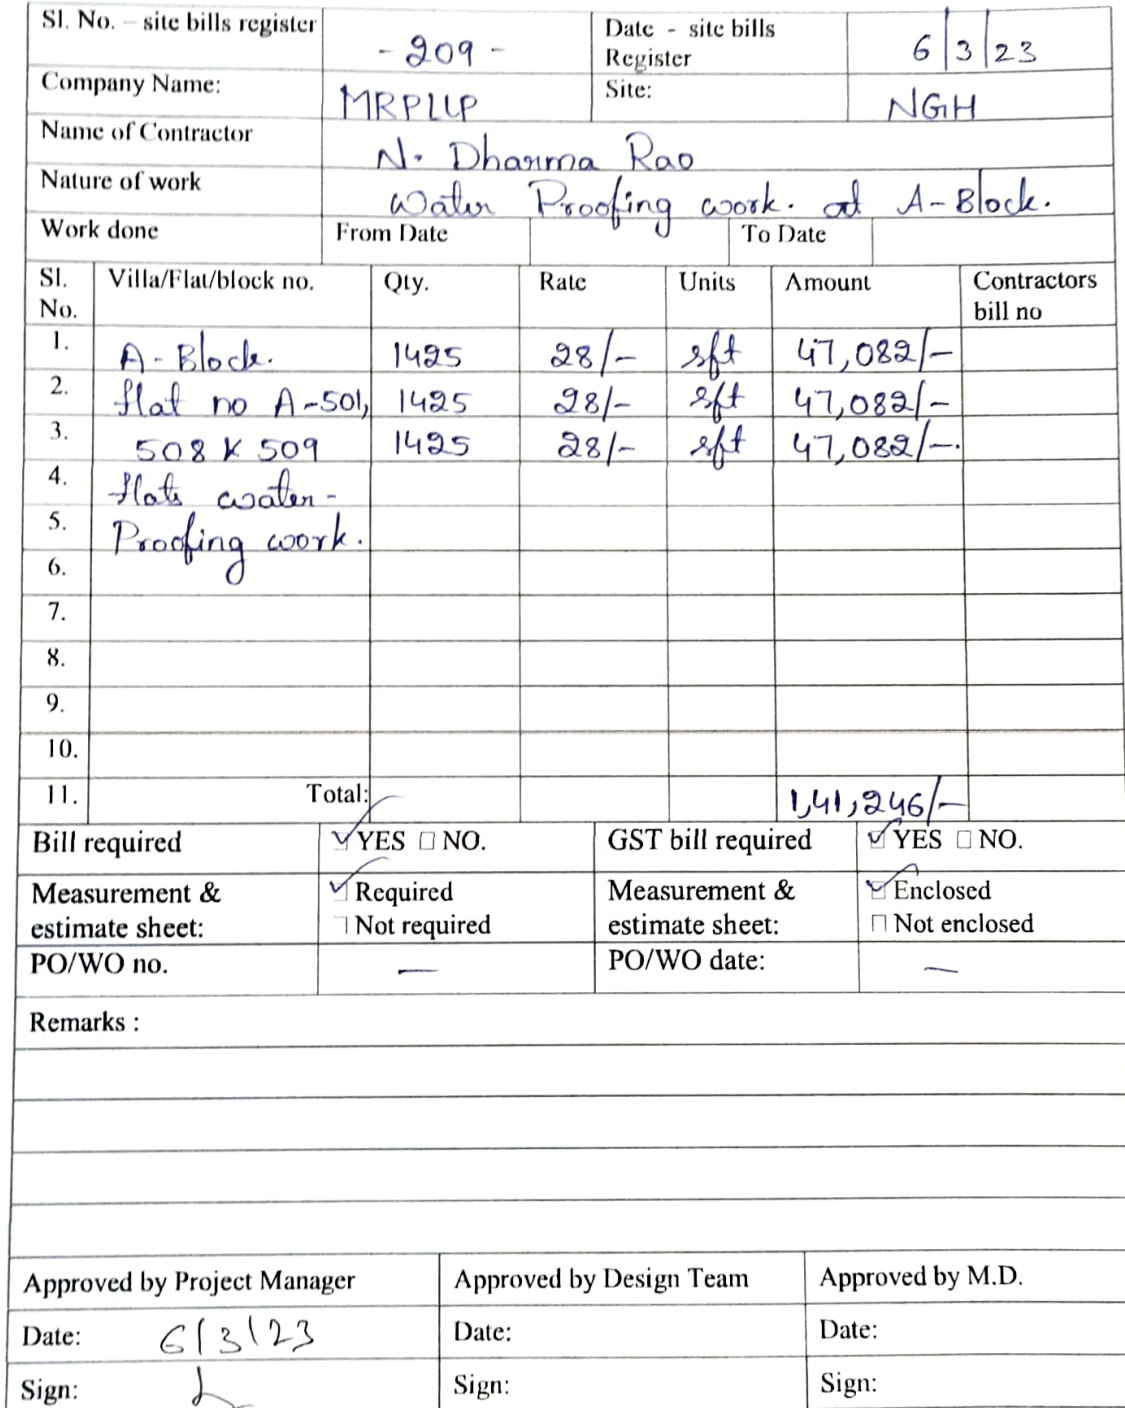 Sl. No. – site bills register - 209 - Date - site bills Register 6/3/23
Company Name: MRPLLP Site: NGH
Name of Contractor N. Dharma Rao
Nature of work Water Proofing work. at A-Block.
Work done From Date To Date
Sl. No. Villa/Flat/block no. Qty. Rate Units Amount Contractors bill no
1. A-Block. 1425 28/- sft 47,082/-
2. flat no A-501, 1425 28/- sft 47,082/-
3. 508 & 509 1425 28/- sft 47,082/-.
4. flats water-
5. Proofing work.
6.
7.
8.
9.
10.
11. Total: 1,41,246/-
Bill required ☑ YES ☐ NO. GST bill required ☑ YES ☐ NO.
Measurement & estimate sheet: ☑ Required ☐ Not required Measurement & estimate sheet: ☑ Enclosed ☐ Not enclosed
PO/WO no. — PO/WO date: —
Remarks :
Approved by Project Manager Approved by Design Team Approved by M.D.
Date: 6/3/23 Date: Date:
Sign: Sign: Sign: